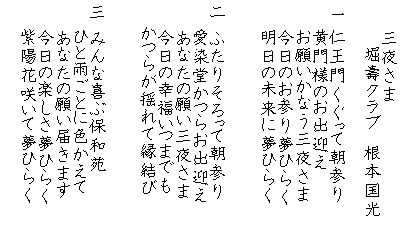 三夜さま
堀壽クラブ 根本国光
一 仁王門くぐって朝参り
黄門様のお出迎え
お願いかなう三夜さま
今日のお参り夢ひらく
明日の未来に夢ひらく
二 ふたりそろって朝参り
愛染堂かつらお出迎え
あなたの願い三夜さま
今日の幸福いつまでも
かつらが揺れて縁結び
三 みんな喜ぶ保和苑
ひと雨ごとに色かえて
あなたの願い届きます
今日の楽しさ夢ひらく
紫陽花咲いて夢ひらく